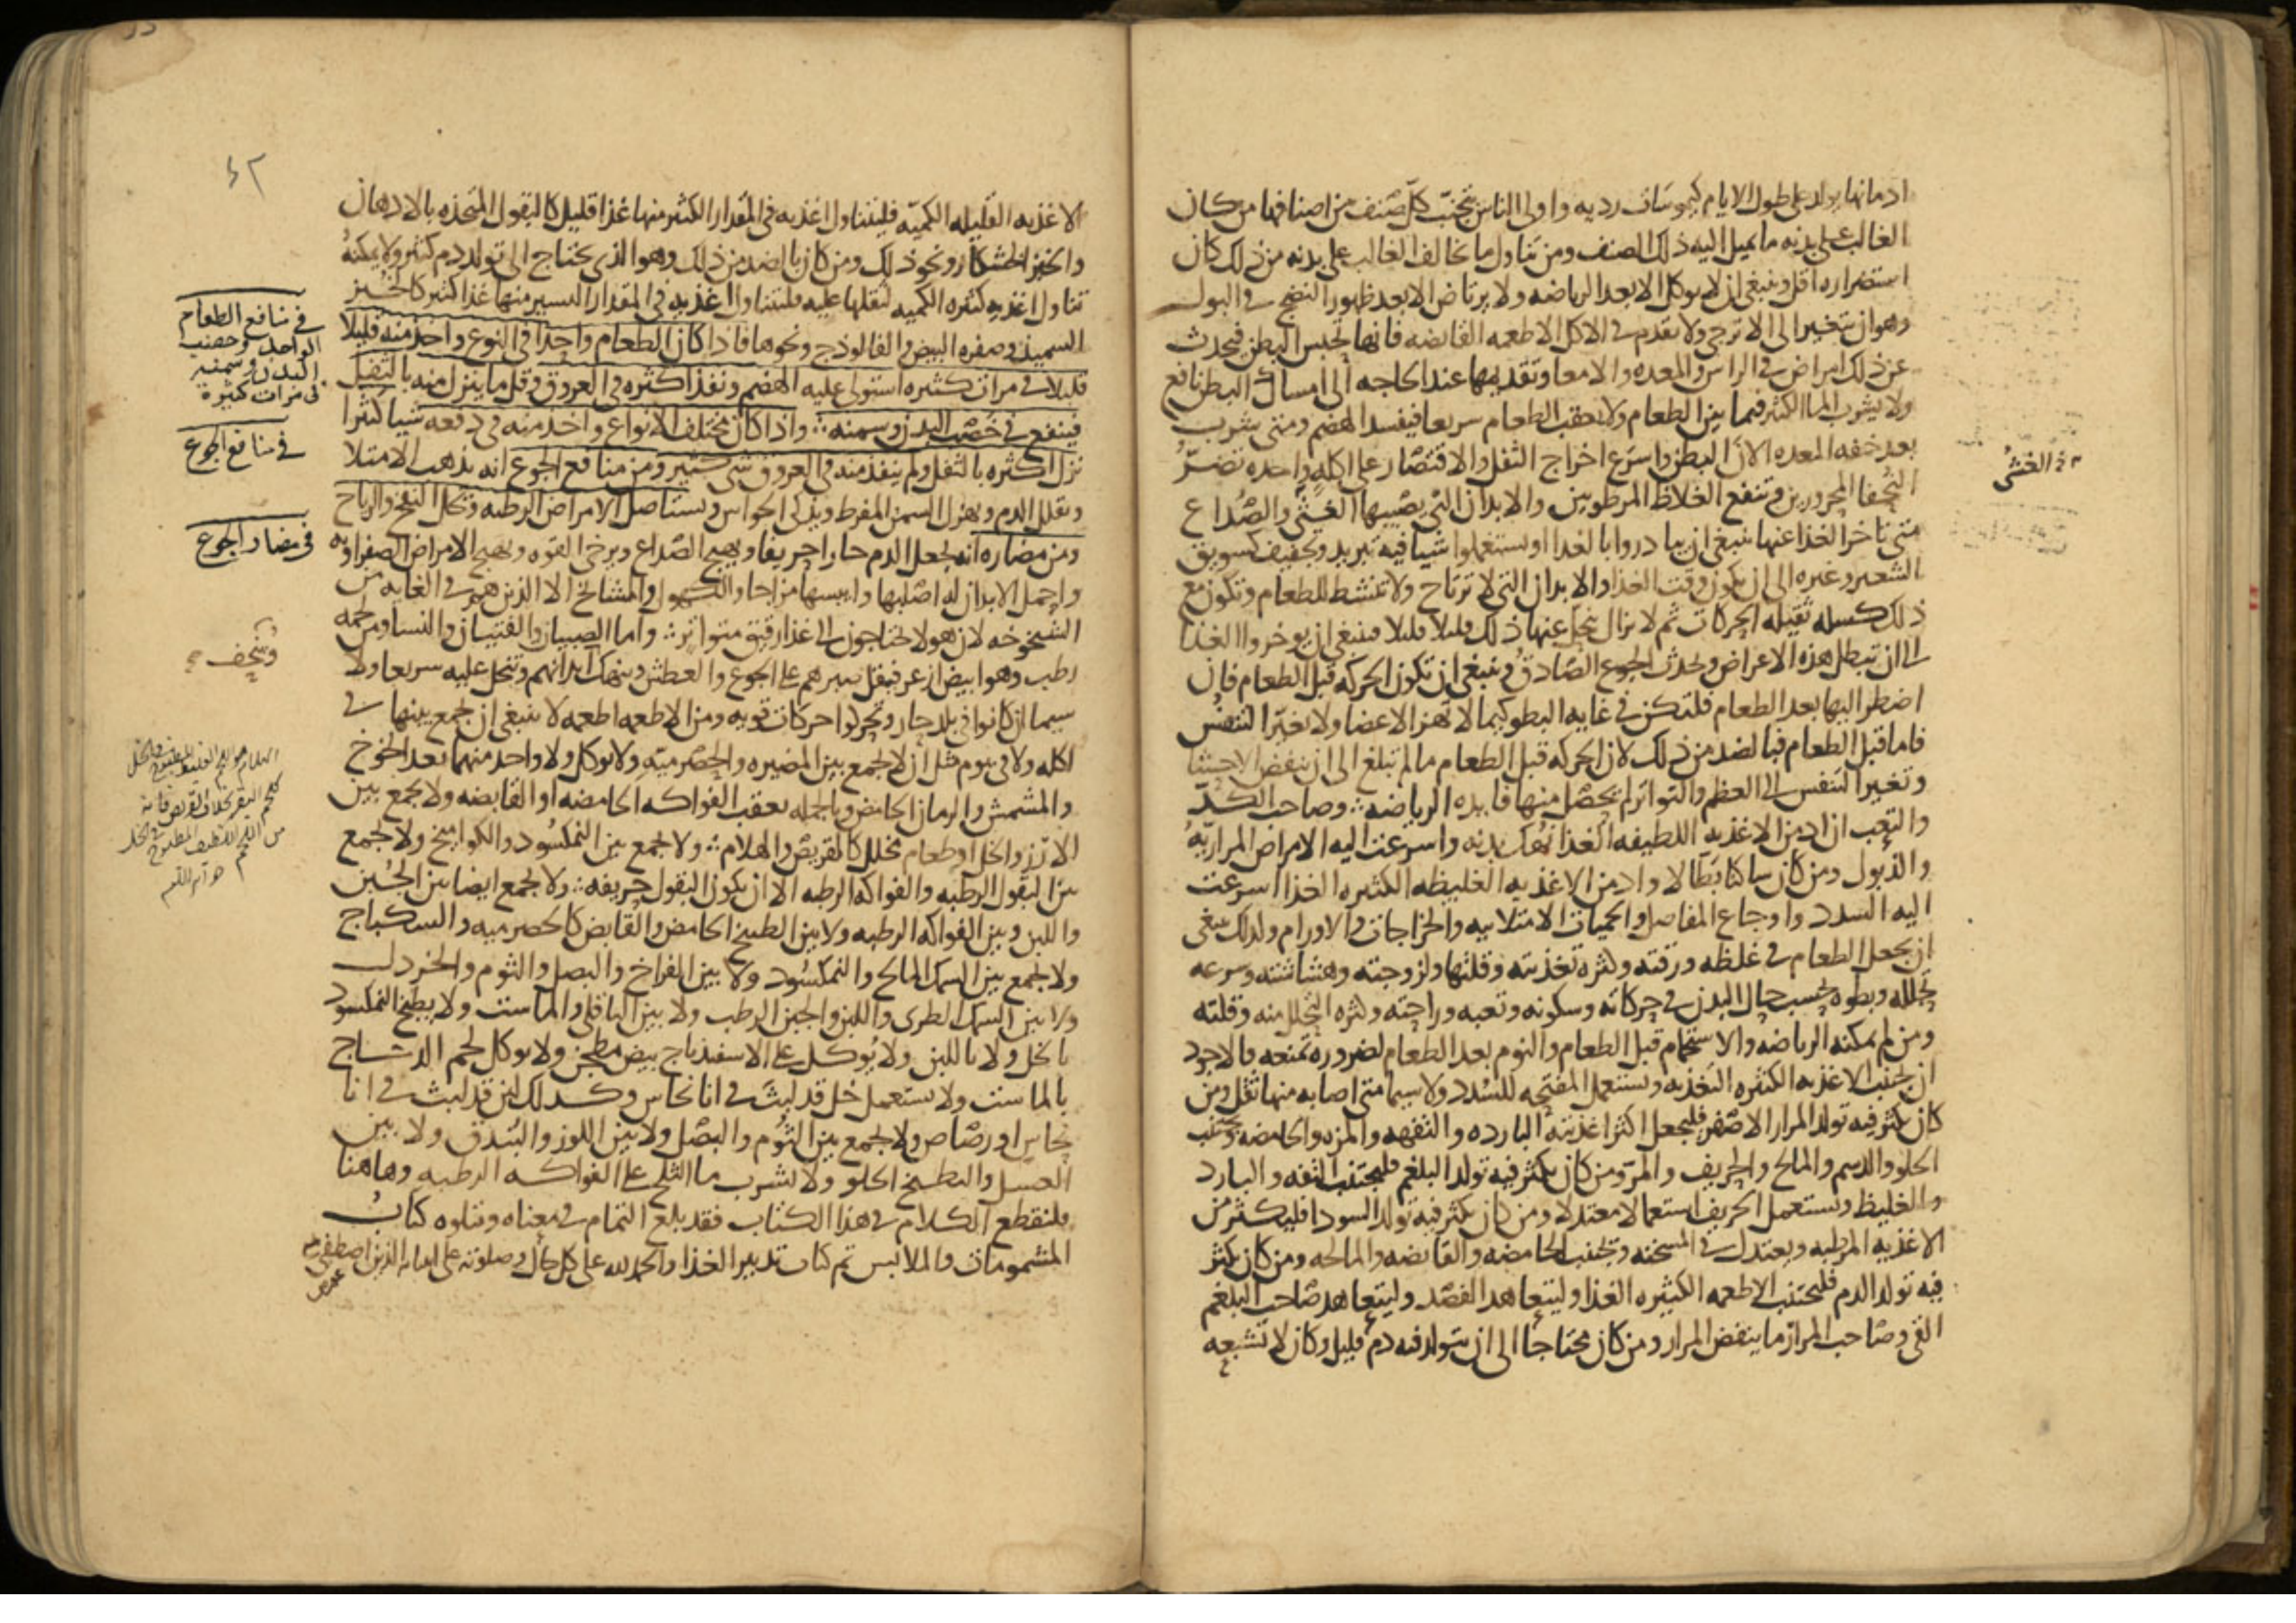 ادمانها يولد على طول الايام كيموسات رديه واولى الناس بتجنب كل صنف من اصنافها من كان
الغالب على بدنه ما يميل اليه ذلك الصنف ومن تناول ما يخالف الغالب على بدنه من ذلك كان
استضراره اقل وينبغى ان لا يوكل الا بعد الرياضه ولا يرتاض الا بعد ظهور النضج فى البول
وهو ان يتغير الى الاترجى ولا يقدم فى الاكل الاطعمه القابضه فانها تحبس البطن فيحدث
عن ذلك امراض فى الراس والمعده والامعا وتقديمها عند الحاجه الى امساك البطن نافع
ولا يشرب الما الكثير فيما بين الطعام ولا بعقب الطعام سريعا فيفسد الهضم ومتى شرب
بعد خفه المعده الان البطن واسرع اخراج الثفل والاقتصار على اكله واحده تضرّ
النُحفا المحرورين وتنفع الغلاظ المرطوبين والابدان التى يصيبها الغشى والصُداع
متى تاخر الغذا عنها ينبغى ان يبادروا بالغدا او يستعملوا شيا فيه تبريد وتجفيف كسويق
الشعير وغيره الى ان يكون وقت الغذا والابدان التى لا ترتاح ولا تنشط للطعام وتكون مع
ذلك كسله ثقيله الحركات ثم لا يزال ينحل عنها ذلك قليلا قليلا فينبغى ان يوخروا الغذا
الى ان تبطل هذه الاعراض ويحدث الجوع الصادق وينبغى ان تكون الحركه قبل الطعام فان
اضطر اليها بعد الطعام فلتكن فى غايه البطو كيما لا تهز الاعضا ولا يغيّر التنفس
فاما قبل الطعام فبالضد من ذلك لان الحركه قبل الطعام ما لم تبلغ الى ان ينفض الاحشا
وتغير التنفس الى العظم والتواتر لم يحصل منها فايده الرياضه وصاحب الكدّ
والتعب ان ادمن الاغذيه اللطيفه الغذا نهك بدنه واسرعت اليه الامراض المراريّه
والذبول ومن كان ساكنا بطالا وادمن الاغذيه الغليظه الكثيره الغذا اسرعت
اليه السدد واوجاع المفاصل والحميات الامتلاييه والخراجات والاورام ولذلك ينبغى
ان يجعل الطعام فى غلظه ورقته وكثره تغذيته وقلتها ولزوجته وهشاشته وسرعه
تحلله وبطوه بحسب حال البدن فى حركاته وسكونه وتعبه وراحته وكثره التحلل منه وقلته
ومن لم يمكنه الرياضه والاستحمام قبل الطعام والنوم بعد الطعام لضروره تمنعه فالاجود
ان يجتنب الاغذيه الكثيره التغذيه ويستعمل المفتحه للسُدد ولا سيما متى اصابه منها ثقل ومن
كان يكثر فيه تولد المرار الاصفر فليجعل اكثر اغذيته البارده والتفهه والمزه والحامضه ويجتنب
الحلو والدسم والمالح والحريف والمرّ ومن كان يكثر فيه تولد البلغم فليجتنب التفه والبارد
والغليظ ويستعمل الحريف استعمالا معتدلا ومن كان يكثر فيه تولد السودا فليكثر من
الاغذيه المرطبه ويعتدل فى المسخنه ويجتنب الحامضه والقابضه والمالحه ومن كان يكثر
فيه تولد الدم فليجتنب الاطعمه الكثيره الغذا وليتعاهد الفصد وليتعاهد صاحب البلغم
القى وصاحب المرار ما ينفض المرار ومن كان محتاجا الى ان يتولد فيه دم قليل وكان لا تشبعه
فى الغشى
الاغذيه القليله الكميّه فليتناول اغذيه فى المقدار الكثير منها غذا قليل كالبقول المتخذه بالادهان
والخبز الخشكار ونحو ذلك ومن كان بالضد من ذلك وهو الذى يحتاج الى تولد دم كثير ولا يمكنهُ
تناول اغذيه كثيره الكميه لثقلها عليه فليتناول اغذيه فى المقدار اليسير منها غذا كثير كالخبز
السميذ وصفره البيض والفالوذج ونحوها فاذا كان الطعام واحدا فى النوع واخذ منه قليلا
قليلا فى مرات كثيره استولى عليه الهضم ونفذ اكثره فى العروق وقل ما ينزل منه بالثفل
فينفع فى خصب البدن وسمنه واذا كان مختلف الانواع واخذ منه فى دفعه شيا كثيرا
نزل اكثره بالثفل ولم ينفذ منه فى العروق شى كثير ومن منافع الجوع انه يذهب الامتلا
ويقلل الدم ويهزل السمن المفرط ويذكى الحواس ويستاصل الامراض الرطبه ويحلل النفخ والرياح
ومن مضاره انه يجعل الدم حارا حريفا ويهيج الصداع ويرخى القوه ويهيج الامراض الصفراويه
واحمل الابدان له اصلبها وايبسها مزاجا والكهول والمشايخ الا الذين هم فى الغايه من
الشيخوخه لان هولا يحتاجون الى غذا رقيق متواتر واما الصبيان والفتيان والنسا ومن لحمه
رطب وهو ابيض ازعر فيقل صبرهم على الجوع والعطش وينهك ابدانهم وتنحل عليه سريعا ولا
سيما ان كانوا فى بلد حار وتحركوا حركات قويه ومن الاطعمه اطعمه لا ينبغى ان يجمع بينها فى
اكله ولا فى يوم مثل ان لا يجمع بين المضيره والحصرميّه ولا يوكل ولا واحد منهما بعد الخوخ
والمشمش والرمان الحامض وبالجمله بعقب الفواكه الحامضه او القابضه ولا يجمع بين
الارّز والخل او طعام مخلل كالقريض والهلام ولا يجمع بين النمكسُود والكواميخ ولا يجمع
بين البقول الرطبه والفواكه الرطبه الا ان يكون البقول حريفه ولا يجمع ايضا بين الجُبن
واللبن وبين الفواكه الرطبه ولا بين الطبيخ الحامض والقابض كالحصرميه والسكباج
ولا يجمع بين السمك المالح والنمكسُود ولا بين الفراخ والبصل والثوم والخردل
ولا بين السمك الطرى واللبن والجبن الرطب ولا بين الباقلى والماست ولا يطبخ النمكسود
بالخل ولا باللبن ولا يُوكل على الاسفيذباج بيض مطجن ولا يوكل لحم الدجاج
بالماست ولا يستعمل خل قد لبث فى انا نحاس وكذلك لبن قد لبث فى انا
نحاس او رصاص ولا يجمع بين الثوم والبصل ولا بين اللوز والبُندق ولا بين
العسل والبطيخ الحلو ولا يشرب ما الثلج على الفواكه الرطبه وهاهنا
فلنقطع الكلام فى هذا الكتاب فقد بلغ التمام فى معناه ونتلوه كتابُ
المشمومات والملابس تم كتاب تدبير الغذا والحمد لله على كل حال وصلوته على الذين اصطفى
٤٢
فى منافع الطعام
الواحد وخصب
البدن وسمنه
فى مرات كثيرة
فى منافع الجوع
فى مضار الجوع